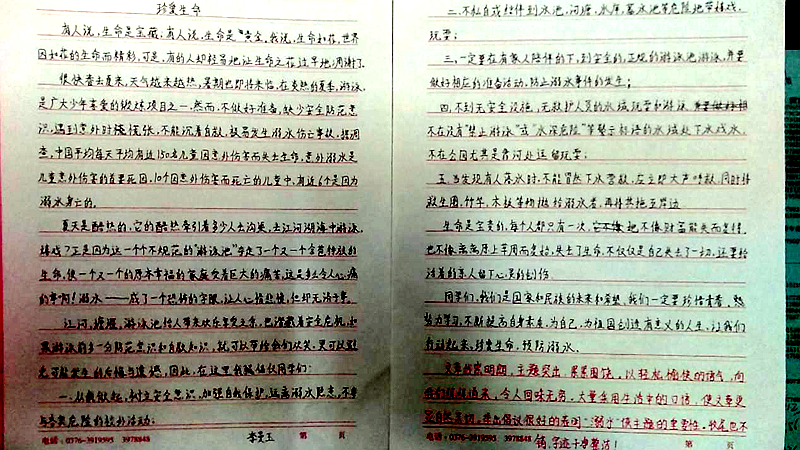 珍爱生命
有人说,生命是宝藏;有人说,生命是黄金,我说,生命如花,世界
因如花的生命而精彩,可是,有的人却轻易地让生命之花过早地凋谢了。
很快春去夏来,天气越来越热,暑期也即将来临,在炎热的夏季,游泳,
是广大少年喜爱的锻炼项目之一。然而,不做好准备,缺少安全防范意
识,遇到意外时慌张,不能沉着自救,极易发生溺水伤亡事故,据调
查,中国平均每天平均有近150名儿童因意外伤害而失去生命,意外溺水是
儿童意外伤害的首要死因,10个因意外伤害而死亡的儿童中,有近6个是因为
溺水身亡的。
夏天是酷热的,它的酷热牵引着多少人去沟渠,去江河湖海中游泳,
嬉戏?正是因为这一个个不规范的"游泳池"夺走了一个又一个含苞待放的
生命,使一个又一个的原本幸福的家庭受着巨大的痛苦,这是多么令人心痛
的事啊!溺水——成了一个恐怖的字眼,让人心惜悲愤,但却无法言
江河,塘堰,游泳池给人带来欢乐享受之余,也深藏着安全危机,如
果游泳前多一分防范意识和自救知识,就可以带给我们欢笑,更可以避
免可能发生的后悔与遗憾。因此,在这里我倡议同学们:
一.从我做起,树立安全意识,加强自我保护,远离溺水隐患,不参
与各类危险的校外活动;
电话:0376-3919595 3978848 李曼玉 第 页
二.不私自或结伴到水池,河塘,水库,蓄水池等危险地带嬉戏,
玩耍;
三.一定要在有家人陪伴的下,到安全的,正规的游泳池游泳,并要
做好相应的准备活动,防止溺水事件的发生;
四.不到无安全设施,无救护人员的水域玩耍和游泳
不在设有"禁止游泳"或"水深危险"等警示标语的水域处下水戏水,
不在公园尤其是浉河处逗留玩耍;
五.当发现有人落水时,不能冒然下水营救,应立即大声呼救,同时将
救生圈,竹竿,木板等物抛给溺水者,再将其拖至岸边
生命是宝贵的,每个人却只有一次,把不像财富能失而复得,
也不像离离原上草周而复始,失去了生命,不仅仅是自己失去了一切,还要给
活着的亲人留下心灵的创伤
同学们,我们是国家和民族的未来和希望,我们一定要珍惜青春,勤
劳力学习,不断提高自身素养,为自己,为祖国创造有意义的人生,让我们
行动起来,珍爱生命,预防溺水。
主题突出,以轻松愉快的语气,向
我们娓娓道来,令人回味无穷,大量采用生活中的口语,使文章更
显自然亲切,提出倡议很好的表明"溺水"保生命的重要性,收尾也不
错,字迹干净整洁!
电话:0376-3919595 3978848 第 页